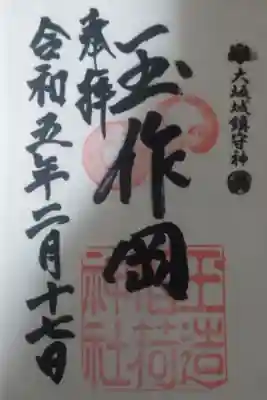 大坂城鎮守神
玉作岡
奉拝
令和五年二月十七日
玉造
稲荷
神社